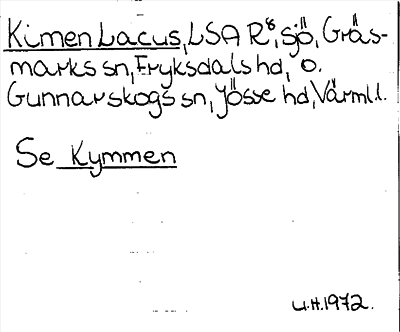 Kimen Lacus, LSA R8, sjö, Gräs-
marks sn, Fryksdals hd, o.
Gunnarskogs sn, Jösse hd, Värml.l.
Se Kymmen
U.H.1972.